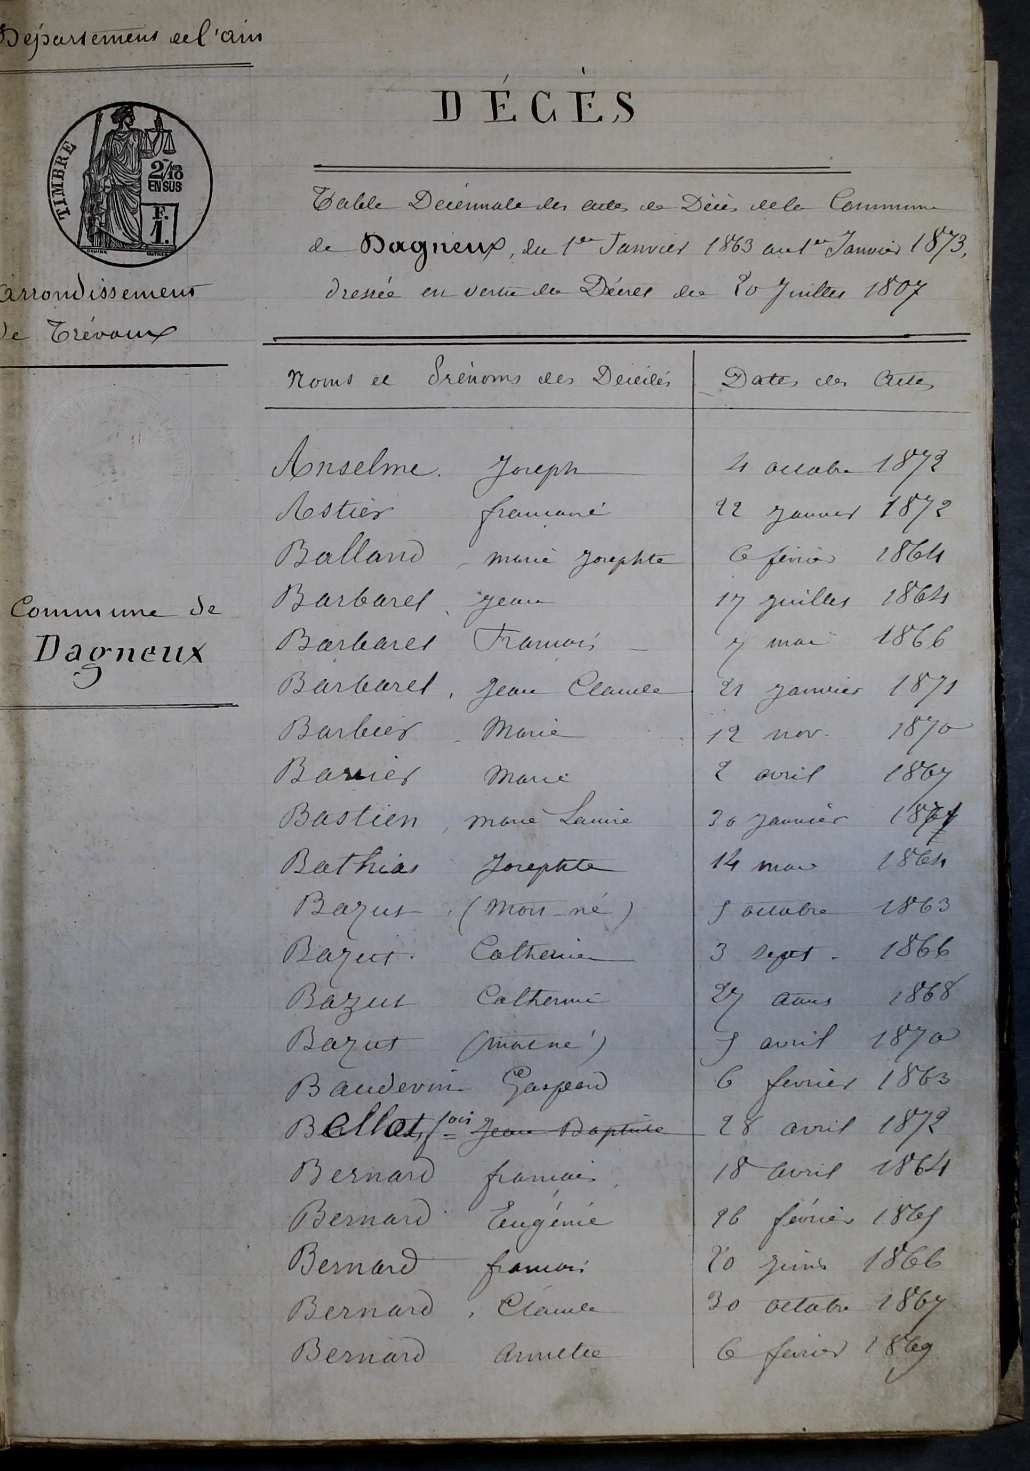 Département de l'ain
TIMBRE
2/10 EN SUS
F. 1.
arrondissement
de Trévoux
Commune de
Dagneux
DÉCÈS
Table Décennale des actes de Décès de la Commune
de Dagneux, du 1er Janvier 1863 au 1er Janvier 1873,
dressée en vertu du Décret du 20 Juillet 1807
Noms et Prénoms des Décédés Dates des Actes
Anselme. Joseph 4 octobre 1872
Astier francoise 22 janvier 1872
Balland marie Josephte 6 février 1864
Barbaret Jean 17 juillet 1864
Barbaret Francois 7 mai 1866
Barbaret, Jean Claude 21 janvier 1871
Barbier Marie 12 nov. 1870
Barrier Marie 2 avril 1867
Bastien, marie Laurie 30 janvier
Bathias Josephte 14 mai 1864
Bazut (mort-né) 5 octobre 1863
Bazut. Catherine 3 sept. 1866
Bazut Catherine 27 août 1868
Bazut (mort né) 5 avril 1870
Baudevin Gaspard 6 fevrier 1863
Bellat, fois Jean Baptiste 28 avril 1872
Bernard francois 18 avril 1864
Bernard Eugénie 26 février 1865
Bernard francois 20 juin 1866
Bernard, Claude 30 octobre 1867
Bernard Annette 6 fevrier 1869